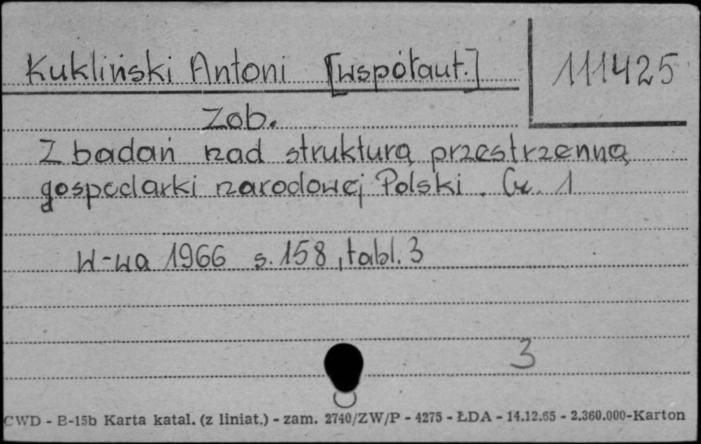 Kukliński Antoni [współaut.]
111425
Zob.
Z badań nad strukturą przestrzenną
gospodarki narodowej Polski. Cz. 1
W-wa 1966 s. 158, tabl. 3
3
CWD - B-15b Karta katal. (z liniat.) - zam. 2740/ZW/P - 4275 - ŁDA - 14.12.65 - 2.360.000-Karton